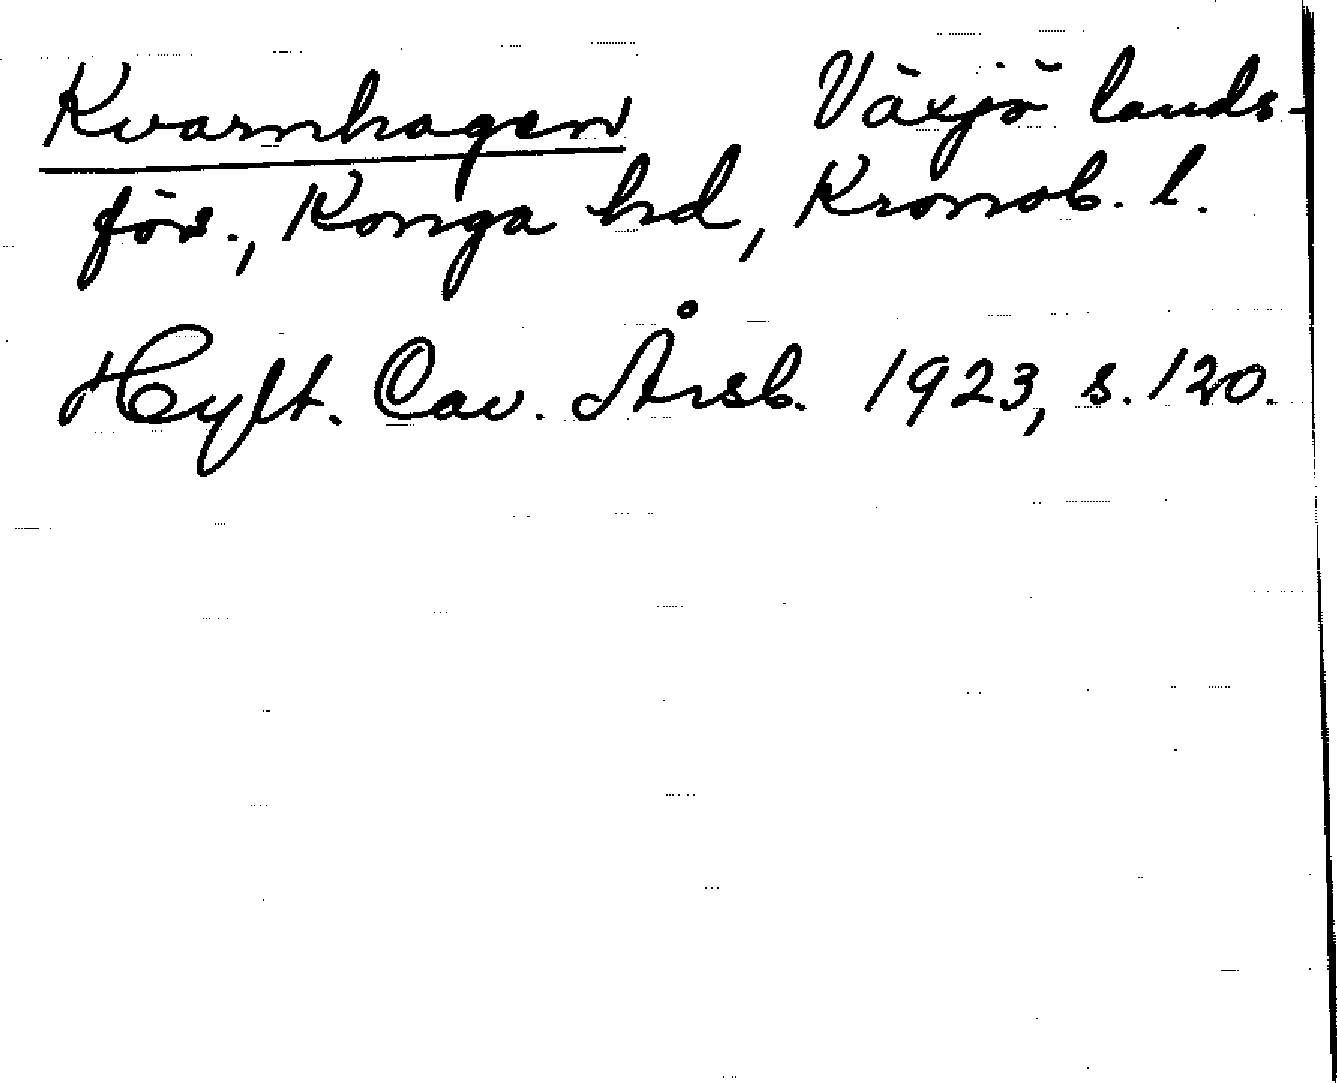 Kvarnhagen Växjö lands-
förs., Konga hd, Kronob. l.
Hylt. Cav. Årsb. 1923, s. 120.